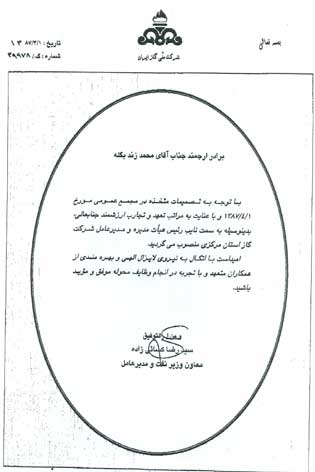 بسمه تعالی
شرکت ملی گاز ایران
تاریخ: ۱۳۸۷/۴/۱
شماره: گ۰/د۳۹۹۷۸
برادر ارجمند جناب آقای محمد زند بگله
با توجه به تصمیمات متخذه در مجمع عمومی مورخ
۱۳۸۷/۴/۱ و با عنایت به مراتب تعهد و تجارب ارزشمند جنابعالی،
بدینوسیله به سمت نایب رئیس هیأت مدیره و مدیرعامل شرکت
گاز استان مرکزی منصوب می گردید.
امیداست با اتکال به نیروی لایزال الهی و بهره مندی از
همکاران متعهد و با تجربه در انجام وظایف محوله موفق و مؤید
باشید.
ومن الله التوفیق
سید رضا کسائی زاده
معاون وزیر نفت و مدیرعامل